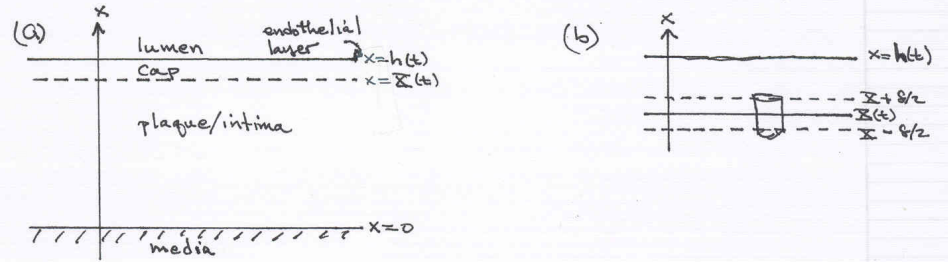 (a)
x
lumen
endothelial
layer
x=h(t)
cap
x=X(t)
plaque/intima
x=0
media
(b)
x
x=h(t)
X+δ/2
X(t)
X-δ/2